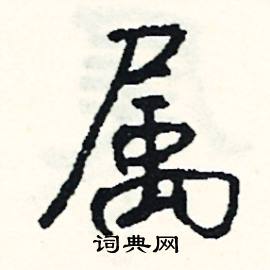 属
词典网